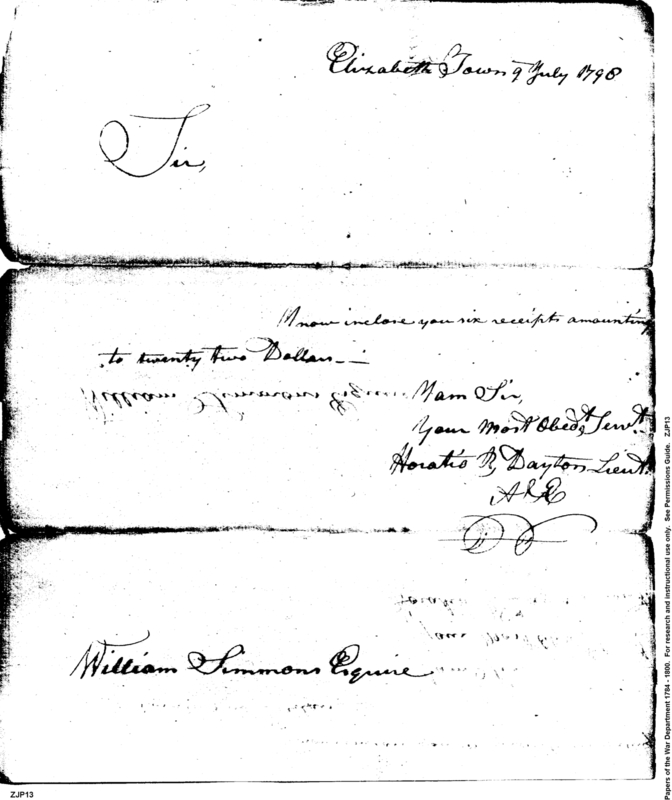 Elizabeth Town 9 July 1798
Sir,
I now inclose you six receipts amounting
to twenty two Dollars —
I am Sir,
Your most Obedt, Servt.
Horatio R, Dayton Lieut.
A & E
William Simmons Esquire
ZJP13
Papers of the War Department 1784 - 1800. For research and instructional use only. See Permissions Guide. ZJP13